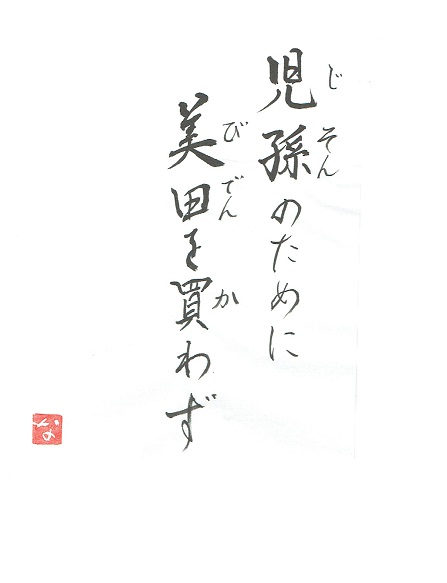 児孫のために
じそん
美田を買わず
びでん か
な